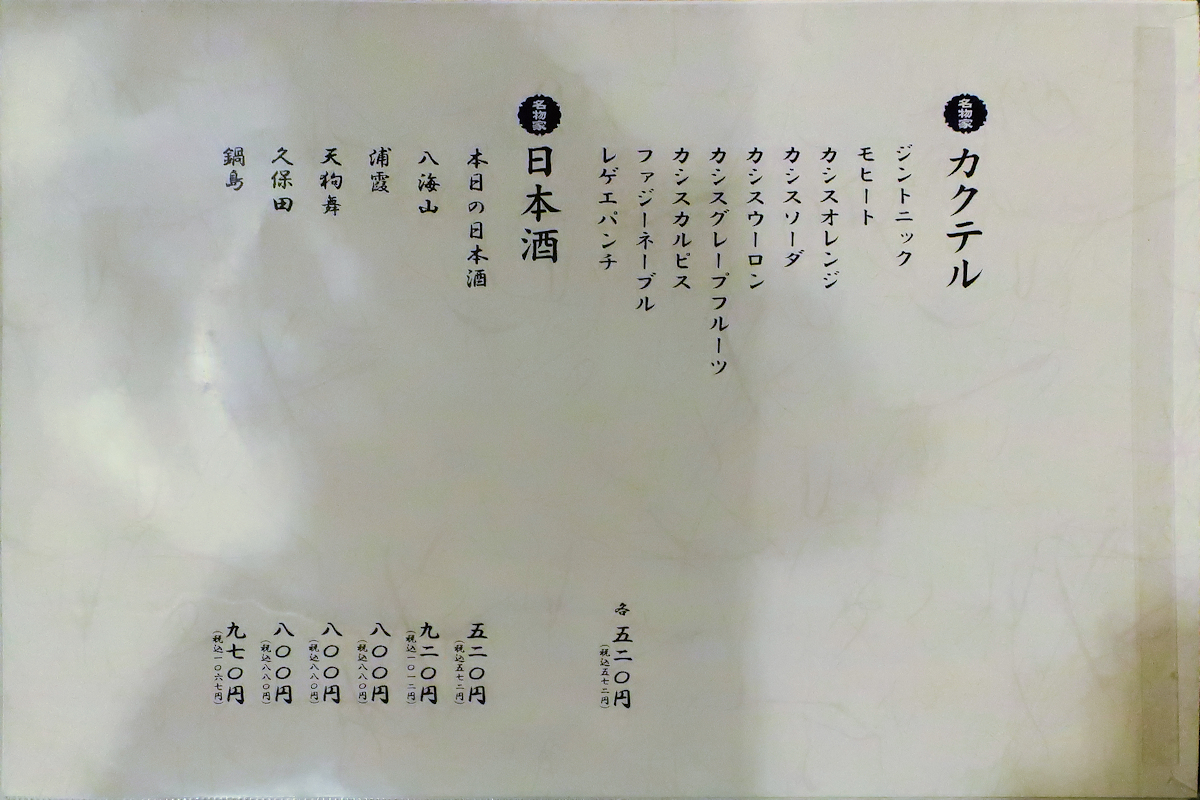 名物家
カクテル
ジントニック
モヒート
カシスオレンジ
カシスソーダ
カシスウーロン
カシスグレープフルーツ
カシスカルピス
ファジーネーブル
レゲエパンチ
各 五二〇円
(税込五七二円)
名物家
日本酒
本日の日本酒 五二〇円
(税込五七二円)
八海山 九二〇円
(税込一〇一二円)
浦霞 八〇〇円
(税込八八〇円)
天狗舞 八〇〇円
(税込八八〇円)
久保田 八〇〇円
(税込八八〇円)
鍋島 九七〇円
(税込一〇六七円)